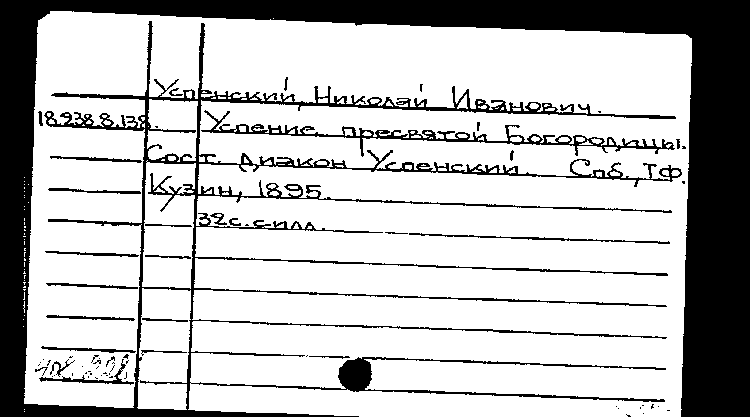 Успенский, Николай Иванович.
18.238.8.138. Успение пресвятой Богородицы.
Сост. диакон Успенский. Спб., Т.Ф.
Кузин, 1895.
32 с. с илл.